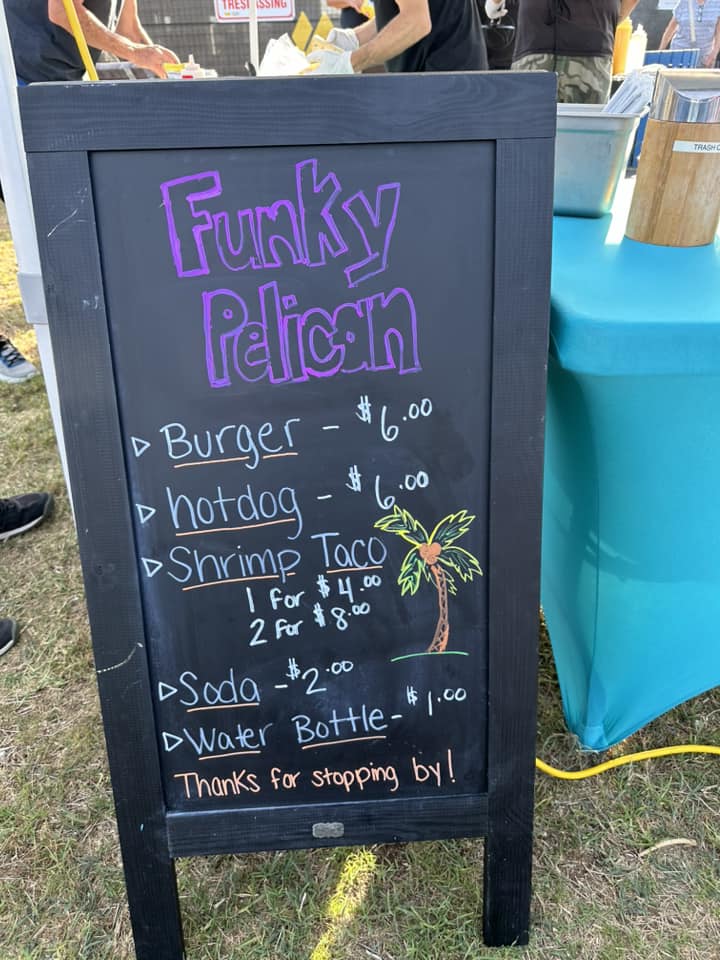 TRESPASSING
Funky
Pelican
▷ Burger - $6.00
▷ hotdog - $6.00
▷ Shrimp Taco
1 for $4.00
2 for $8.00
▷ Soda - $2.00
▷ Water Bottle - $1.00
Thanks for stopping by!
TRASH